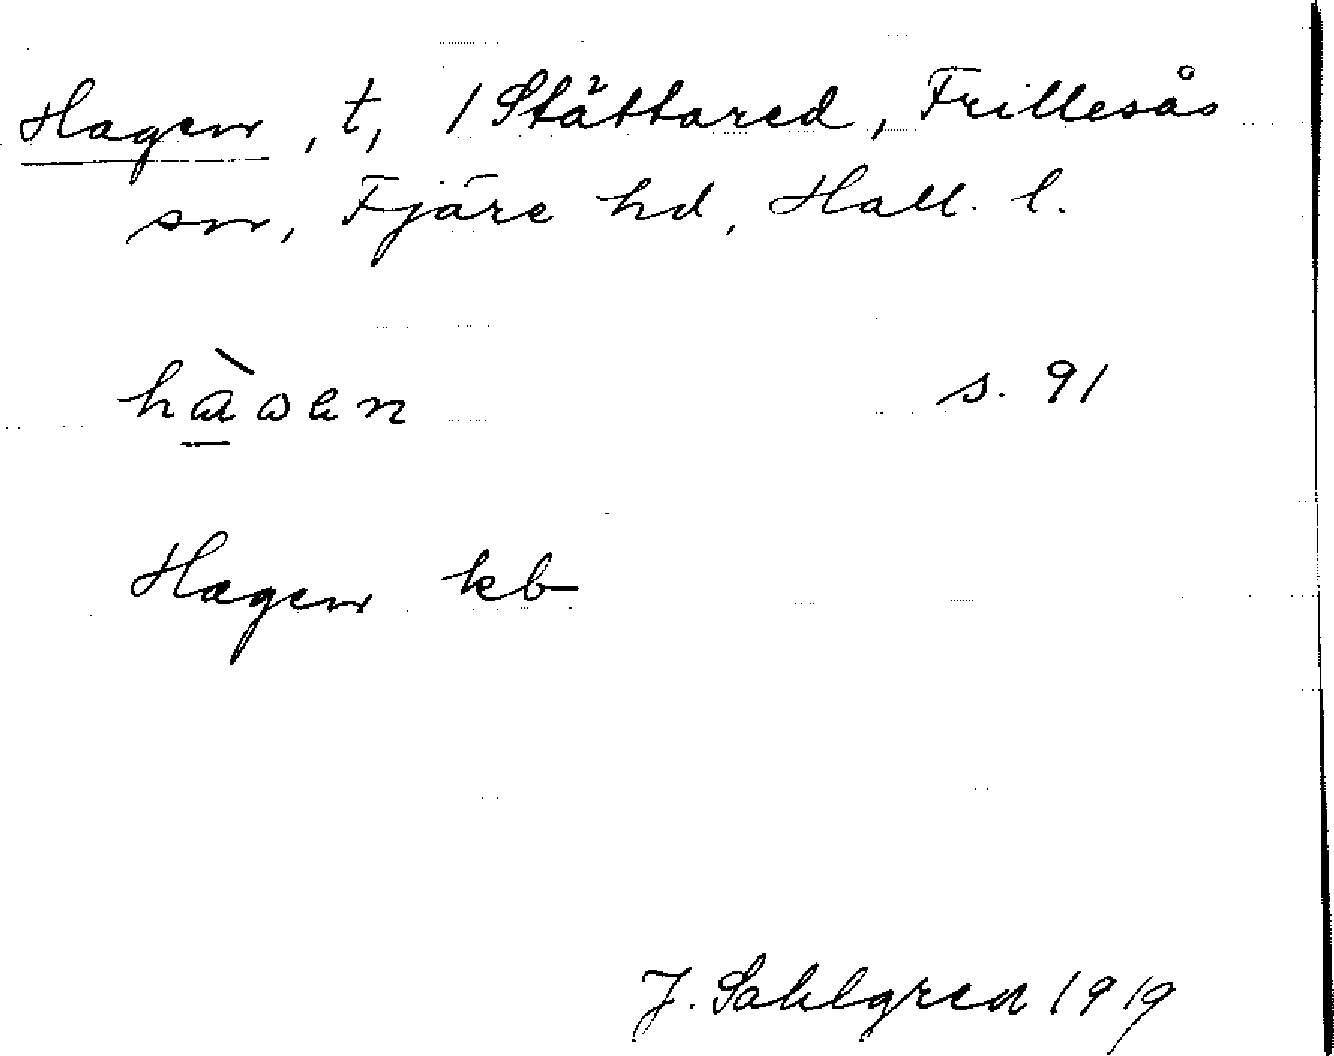 Hagen, t, 1 Stättared, Frillesås
sn, Fjäre hd, Hall. l.
hàwen s. 91
Hagen kb
J. Sahlgren 1919